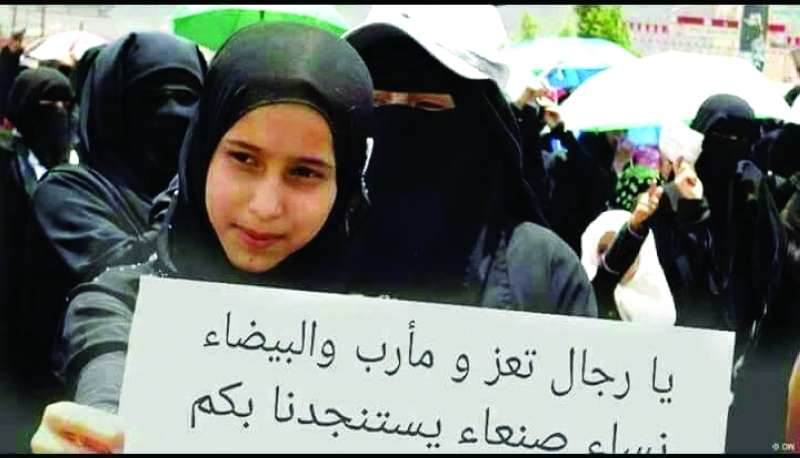 يا رجال تعز و مأرب والبيضاء
نساء صنعاء يستنجدنا بكم
© DW